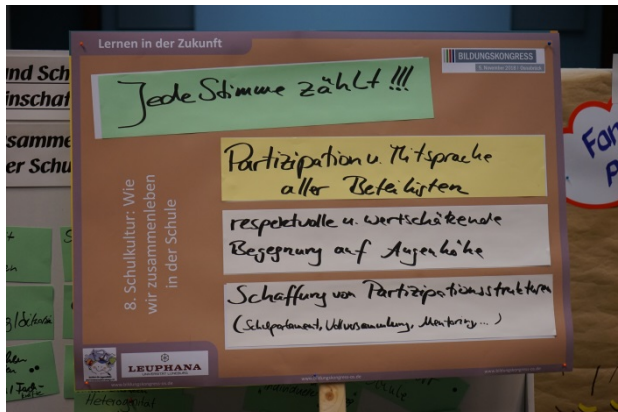 Lernen in der Zukunft
BILDUNGSKONGRESS
Jede Stimme zählt!!!
Partizipation u. Mitsprache
aller Beteiligten
respektvolle u. wertschätzende
Begegnung auf Augenhöhe
Schaffung von Partizipationsstrukturen
(Schulparlament, Vollversammlung, Mentoring...)
8. Schulkultur: Wie
wir zusammenleben
in der Schule
LEUPHANA
nd Sch
inschaf
samme
er Schu
Heterogenität